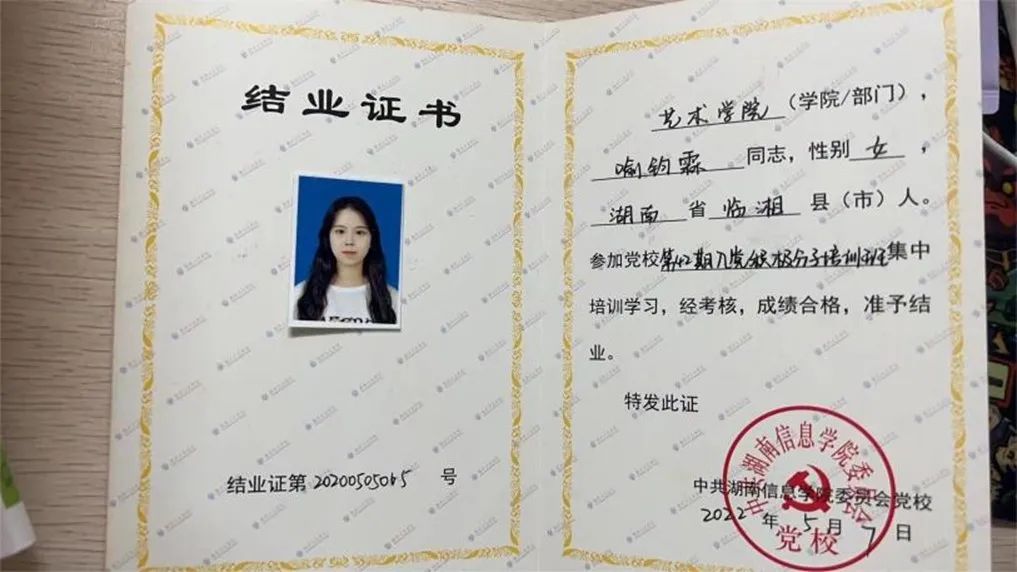 结业证书
结业证第 20200505065 号
艺术学院（学院/部门），
喻钧霖 同志，性别 女 ，
湖南 省 临湘 县（市）人。
参加党校第42期入党积极分子培训班集中
培训学习，经考核，成绩合格，准予结
业。
特发此证
中共湖南信息学院委员会党校
2022 年 5 月 7 日
中共湖南信息学院委员会
党校